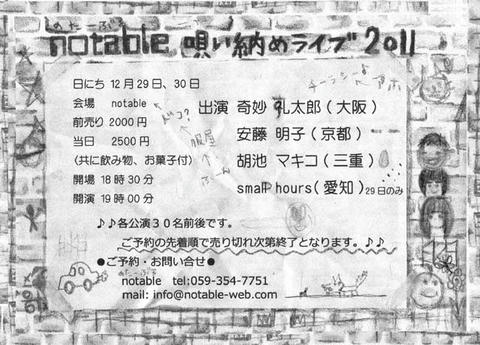 のたーぶる
notable 唄い納めライブ2011
日にち 12月29日、30日
会場 notable
前売り 2000円
当日 2500円
(共に飲み物、お菓子付)
開場 18時30分
開演 19時00分
どこ?
服屋
出演 奇妙 礼太郎(大阪)
安藤 明子(京都)
胡池 マキコ(三重)
small hours(愛知)29日のみ
♪♪各公演30名前後です。
ご予約の先着順で売り切れ次第終了となります。♪♪
●ご予約・お問い合せ●
のたーぶる
notable tel:059-354-7751
mail: info@notable-web.com